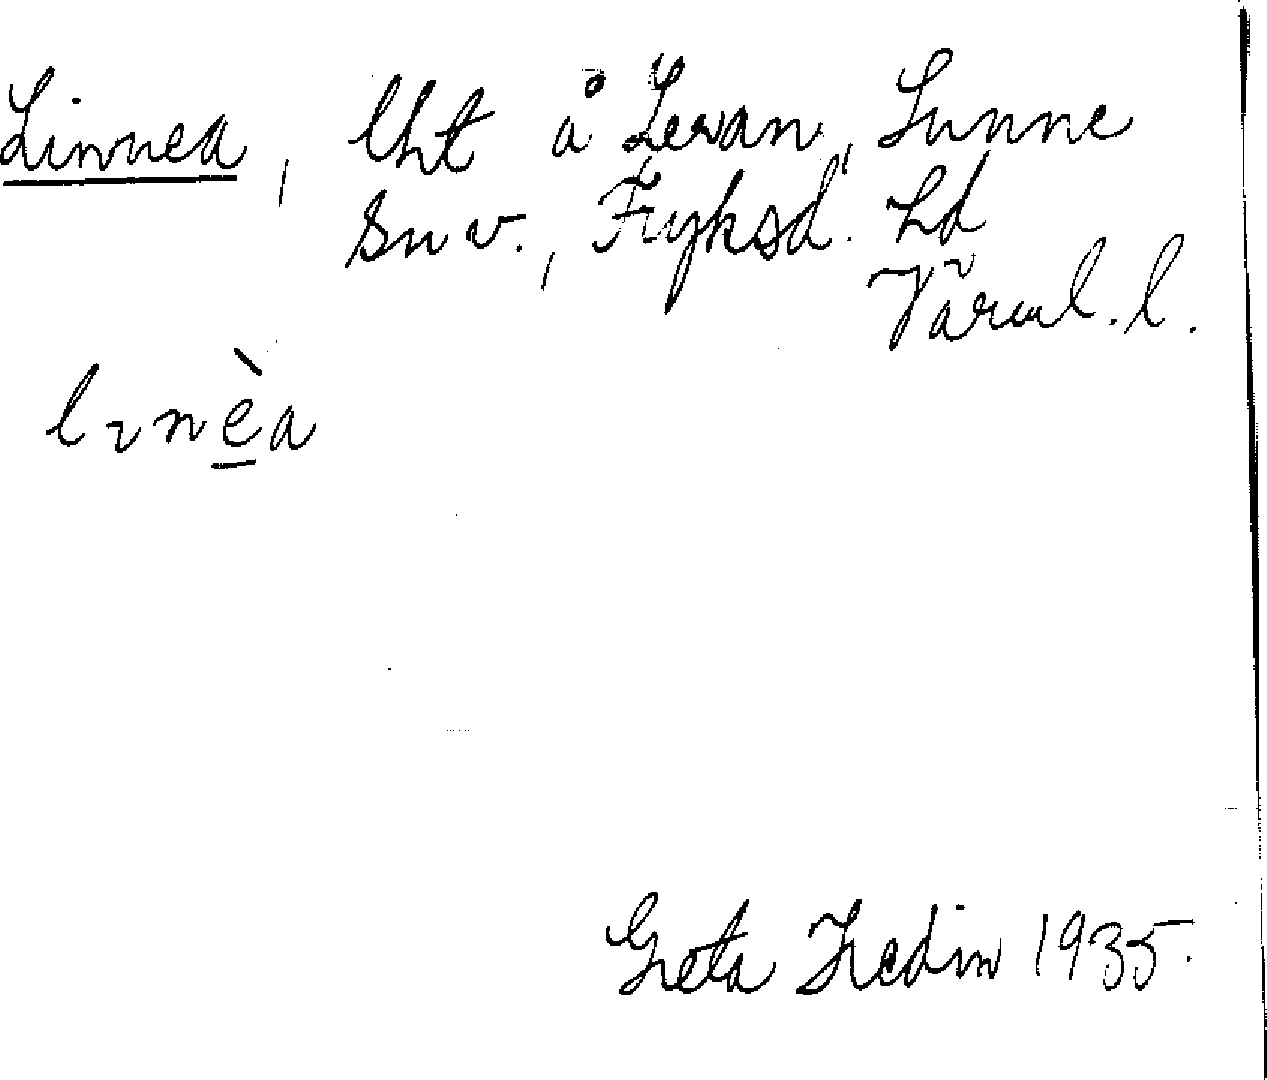 Linnea, lht å Levan, Sunne
sn v., Fryksd. hd
Värml. l.
lınèa
Greta Hedin 1935.